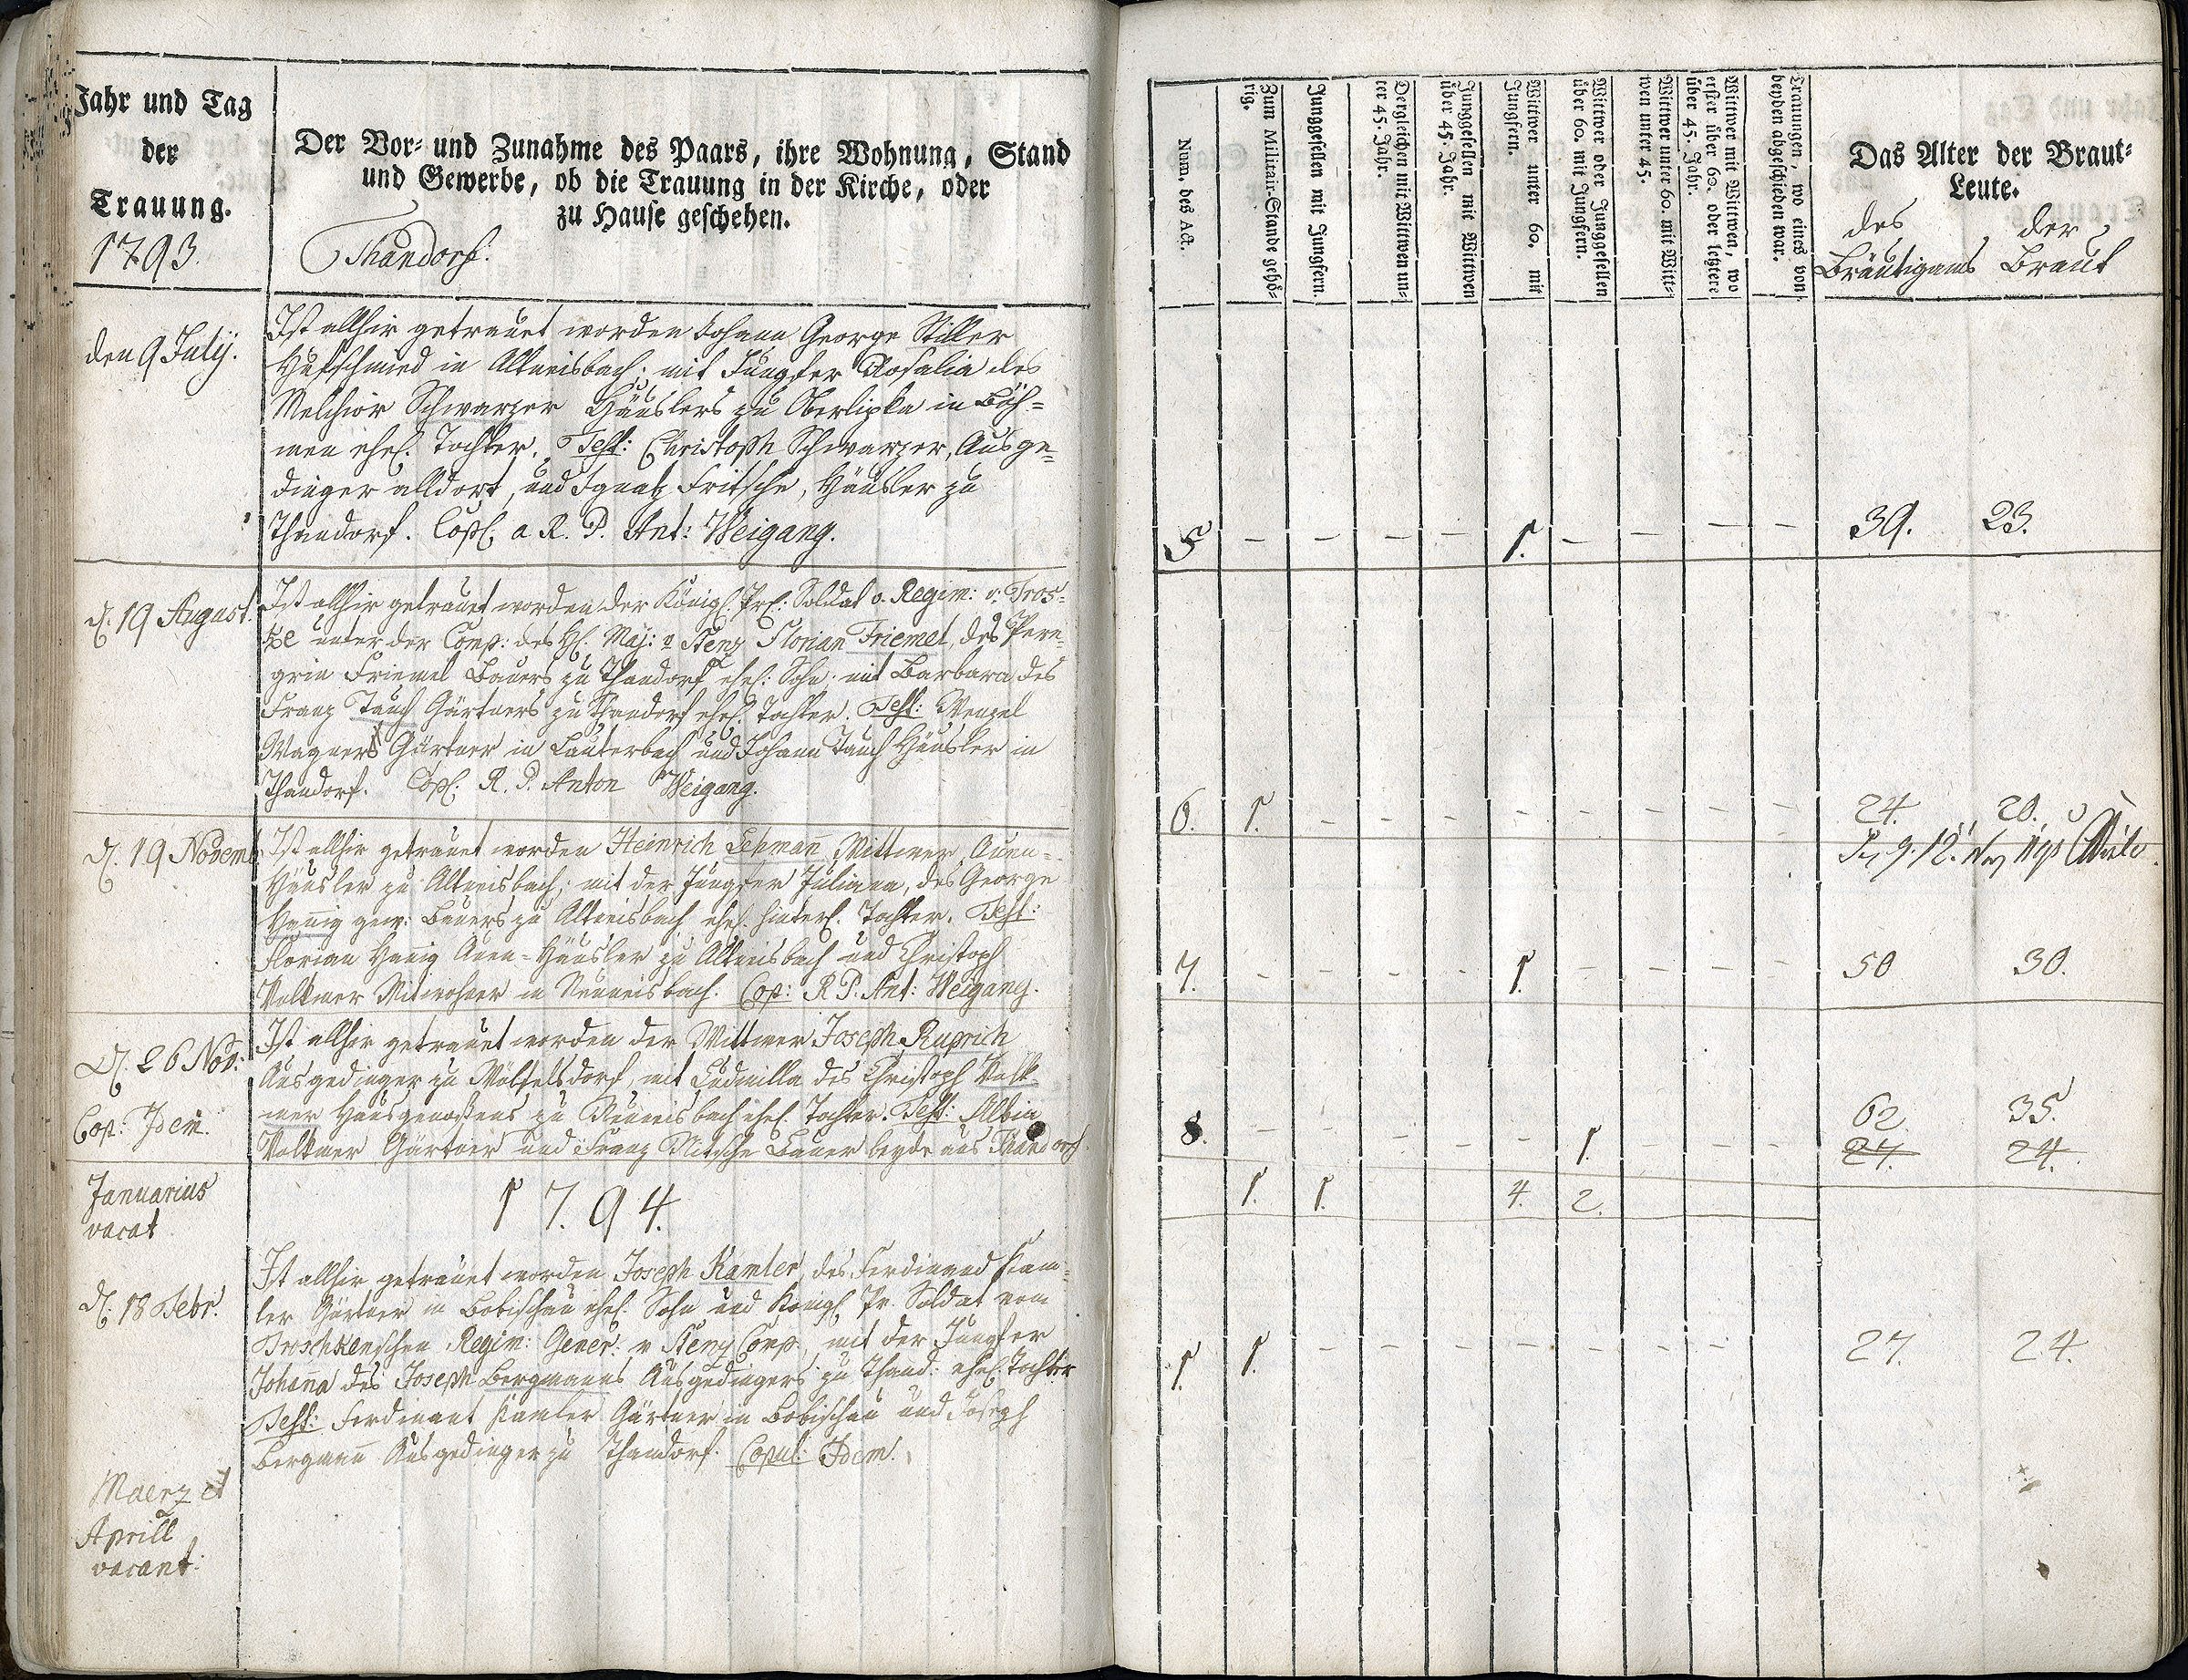 Jahr und Tag
der
Trauung.
1793.
Der Vor- und Zunahme des Paars, ihre Wohnung, Stand
und Gewerbe, ob die Trauung in der Kirche, oder
zu Hause geschehen.
Thandorf.
den 9 Julij.
Ist allhir getrauet worden Johann George Stiller
Hufschmied in Altneisbach; mit Jungfer Rosalia des
Melchior Schwarzer Häuslers zu Oberlipka in Böh=
men ehel. Tochter. Test: Christoph Schwarzer, Ausge=
dinger alldort, und Ignatz Fritsche, Häusler zu
Thandorf. Copl. a R. P. Ant: Weigang.
d. 19 August.
Ist allhir getrauet worden der Königl. Prß: Soldat v. Regim: v. Tros=
ke unter der Comp: des H. Maj: v Stenz Florian Friemel, des Pere=
grin Friemel Bauers zu Thandorf ehel: Sohn: mit Barbara des
Franz Tauch Gärtners zu Thandorf ehel. Tochter. Test: Wenzel
Wagner Gärtner in Lauterbach und Johann Tauch Häusler in
Thandorf. Copl. R. P. Anton Weigang.
d. 19 Novemb.
Ist allhir getrauet worden Heinrich Lehmann Wittwer Auen=
Häusler zu Altneisbach; mit der Jungfer Juliana, des George
Hannig gew: Bauers zu Altneisbach ehel. hinterl. Tochter. Test:
Florian Hannig Auen=Häusler zu Altneisbach und Christoph
Volkmer Mitwohner in Neuneisbach. Cop: R P. Ant: Weigang.
d. 26 Nov:
Cop: Idem.
Ist allhir getrauet worden der Wittwer Joseph Ruprich
Ausgedinger zu Wölfelsdorf, mit Ludmilla des Christoph Volk
mer Hausgenoßens zu Neuneisbach ehel. Tochter. Test: Albin
Volkmer Gärtner und Franz Nitsche Bauer beyde aus Thandorf.
Januarius
vacat
1794.
d. 18 Febr.
Ist allhir getrauet worden Joseph Kamler, des Ferdinand Kam=
ler Gärtner in Bobischau ehel. Sohn und Königl. Pr. Soldat vom
Troschkenschen Regim: Gener: v Stenz Comp, mit der Jungfer
Johana des Joseph Bergmanns Ausgedingers zu Thand: ehel. Tochter
Test: Ferdinant Kamler Gärtner in Bobischau und Joseph
Bergmann Ausgedinger zu Thandorf. Copul: Idem.
Maerz et
Aprill
vacant.
Num. des Act.
Zum Militair-Stande gehö-
rig.
Junggesellen mit Jungfern.
Dergleichen mit Wittwen un-
ter 45. Jahr.
Junggesellen mit Wittwen
über 45. Jahr.
Wittwer unter 60. mit
Jungfern.
Wittwer oder Junggesellen
über 60. mit Jungfern.
Wittwer unter 60. mit Witt-
wen unter 45.
Wittwer mit Wittwen, wo
erster über 60. oder letztere
über 45. Jahr.
Trauungen, wo eines von
beyden abgeschieden war.
Das Alter der Braut-
Leute.
des der
Bräutigams Braut
5 - - - - 1. - - - - 39. 23.
6. 1. - - - - - - - - 24. 20.
7. - - - - 1. - - - - 50 30.
8. - - - - - 1. - - - 62 35.
27. 24.
1. 1. 4. 2.
1. 1. - - - - - - - 27. 24.